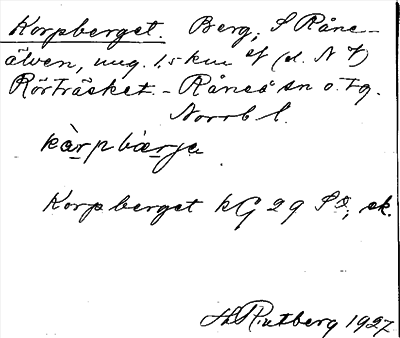 Korpberget. Berg, S Råne-
älven, ung. 1,5 km (d. N f)
Rörträsket - Råneå sn o. tg.
Norrb l.
kàrpbàrjə
Korpberget kG 29 SO, sk.
Rutberg 1927